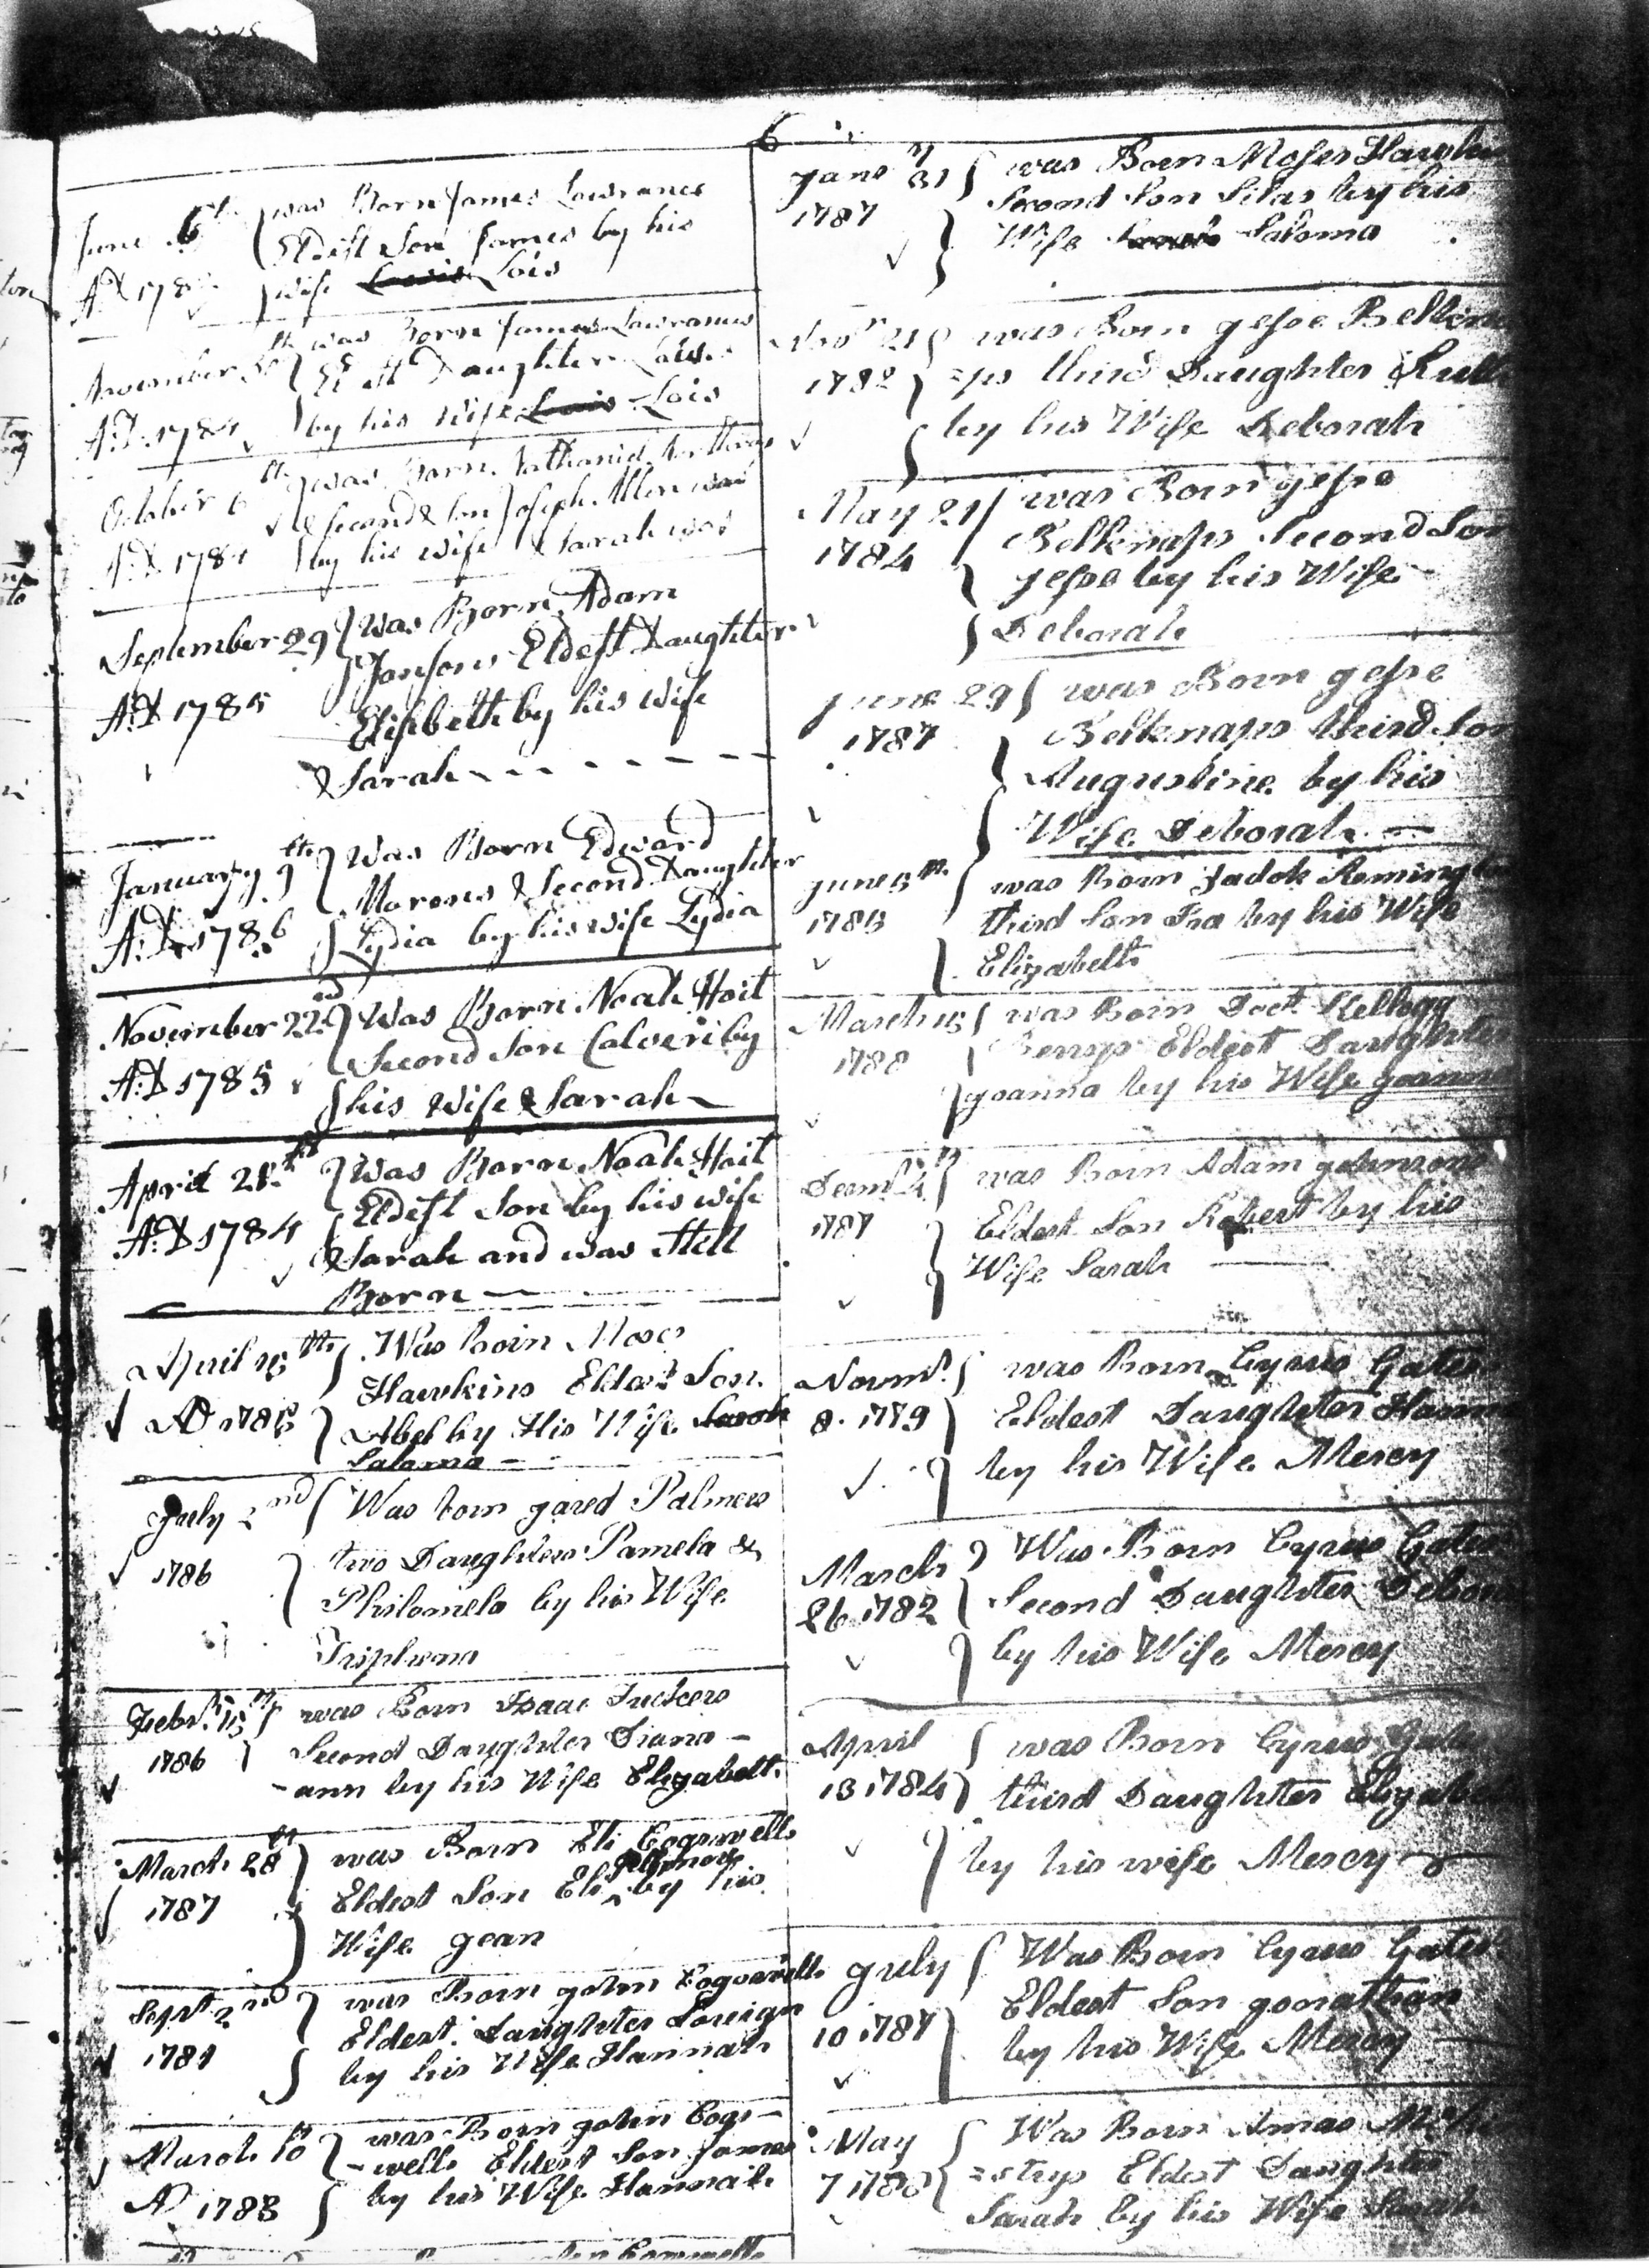 6
June 6th was Born James Lowrance
Eldest Son James by his
A.D 178 wife Lois
November 30th was Born James Lowrances
Eldest Daughter
A.D. 1784 by his wife Lois
October 6th was Born Nathaniel
Second Son Joseph Allen was
A.D 1784 by his wife Sarah was
September 29 was Born Adam
Jonsons Eldest Daughter
A.D 1785 Elisebeth by his wife
Sarah
January 9th was Born Edward
Second Daughter
A.D. 1786 Lydia by his wife Lydia
November 22nd Was Born Noah Hoit
Second Son by
A.D 1785 his Wife Sarah
April 21st Was Born Noah Hoit
Eldest Son by his wife
A.D 1784 Sarah and was Still
Born
April 15th Was Born Moses
Hawkins Eldest Son
AD 1785 Abel by His Wife Sarah
Saloma
July 2nd Was born Jared Palmers
two Daughters Pamela &
1786 Philomela by his Wife
Febr. 15th was Born Isaac Tuckers
Second Daughter Diana-
1786 -ann by his Wife Elizabeth
March 28th was Born Eli Cogswells
Eldest Son Eli by his
1787 Wife Jean
Sept 2nd was Born John Cogswells
Eldest Daughter
1781 by his Wife Hannah
March 10th was Born John Cogs-
-wells Eldest Son James
AD 1783 by his Wife Hannah
June 31 was Born Moses
1787 Second Son Silas by his
Wife Saloma
Novr 21 was Born Jesse
1782 =ps third Daughter
by his Wife Deborah
May 21 was Born Jesse
1784 Belknaps Second Son
Jesse by his Wife
Deborah
June 29 was Born Jesse
1787 Belknaps third Son
Augustine by his
Wife Deborah
June 5th was Born Zadok
1785 third Son Ira by his Wife
Elizabeth
March 15 was Born Doct. Kellogg
1788 Berrys Eldest Daughter
Joanna by his Wife Joanna
was Born Adam Johnsons
1787 Eldest Son Robert by his
Wife Sarah
Novmr. was Born Cyrus Gates
8. 1779 Eldest Daughter
by his Wife Mercy
March Was Born Cyrus Gates
26 1782 Second Daughter
by his Wife Mercy
April was Born Cyrus Gates
13 1784 third Daughter
by his wife Mercy
July Was Born Cyrus Gates
10 1787 Eldest Son Jonathan
by his Wife Mercy
May Was Born
7 1788 Eldest Daughter
Sarah by his Wife Sarah